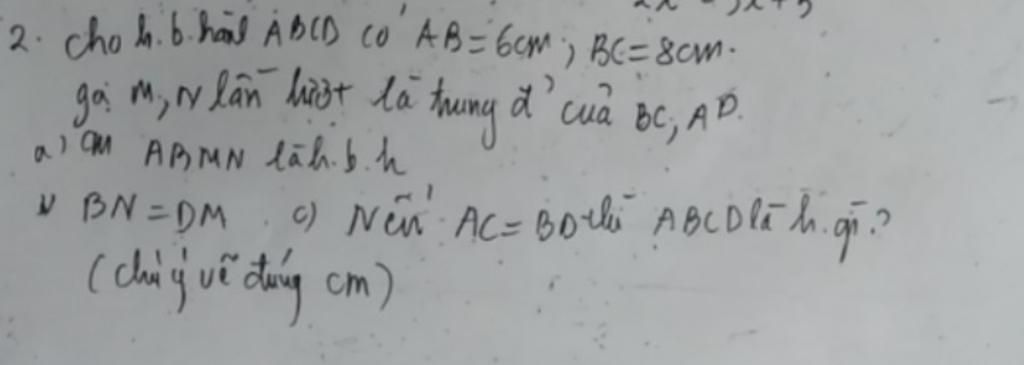 2. Cho h.b.hành ABCD có AB=6cm; BC=8cm.
gọi M,N lần lượt là trung đ' của BC, AD.
a) cm ABMN là h.b.h
b) BN=DM c) Nếu AC=BD thì ABCD là h.gì?
(chú ý vẽ đúng cm)